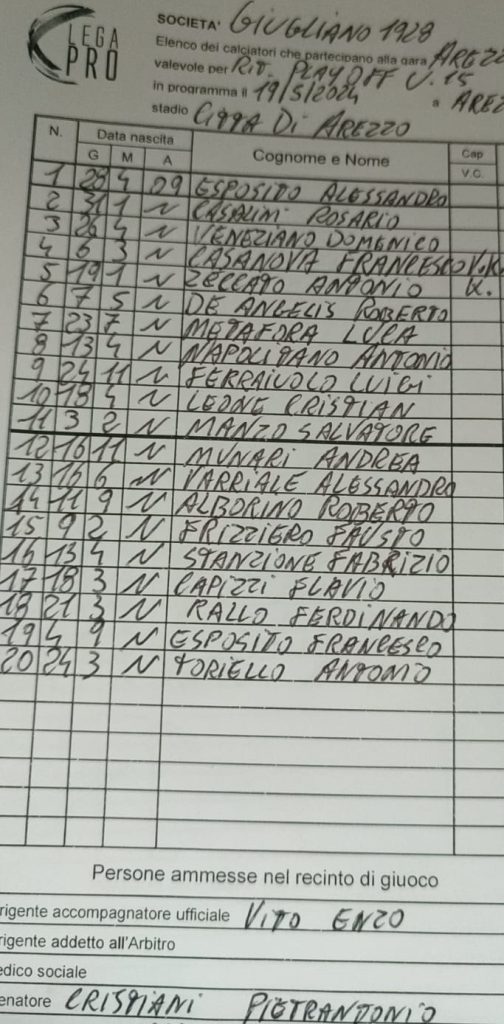 LEGA PRO
SOCIETA' GIUGLIANO 1928
Elenco dei calciatori che partecipano alla gara AREZZO
valevole per RIT. PLAY OFF U.15
in programma il 19/5/2024 a AREZ
stadio CITTA DI AREZZO
N. Data nascita Cognome e Nome Cap
G M A V.C.
1 28 4 09 ESPOSITO ALESSANDRO
2 31 1 N CASALINI ROSARIO
3 26 4 N VENEZIANO DOMENICO
4 6 3 N CASANOVA FRANCESCO V.K
5 19 1 N ZECCATO ANTONIO K.
6 7 5 N DE ANGELIS ROBERTO
7 23 7 N METAFORA LUCA
8 13 4 N NAPOLITANO ANTONIO
9 24 11 N FERRAIUOLO LUIGI
10 18 4 N LEONE CRISTIAN
11 3 2 N MANZO SALVATORE
12 16 11 N MUNARI ANDREA
13 16 6 N VARRIALE ALESSANDRO
14 11 9 N ALBORINO ROBERTO
15 9 2 N FRIZZIERO FAUSTO
16 13 4 N STANZIONE FABRIZIO
17 18 3 N CAPIZZI FLAVIO
18 21 3 N RALLO FERDINANDO
19 4 9 N ESPOSITO FRANCESCO
20 24 3 N TORIELLO ANTONIO
Persone ammesse nel recinto di giuoco
rigente accompagnatore ufficiale VITO ENZO
rigente addetto all'Arbitro
edico sociale
enatore CRISTIANI PIETRANTONIO